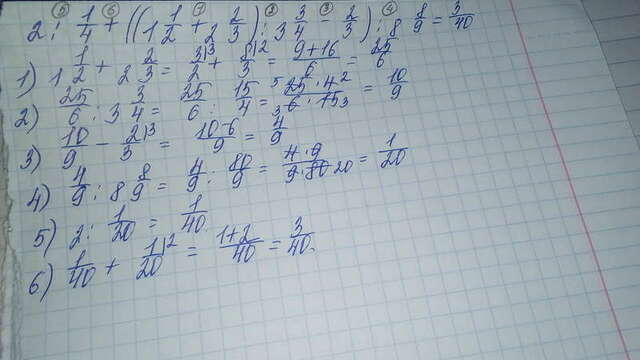 ⑤ ⑥ ① ② ③ ④
2 : 1/4 + ((1 1/2 + 2 2/3) : 3 3/4 - 2/3) : 8 8/9 = 3/40
1) 1 1/2 + 2 2/3 = 3/2 |3 + 8/3 |2 = 9+16/6 = 25/6
2) 25/6 : 3 3/4 = 25/6 : 15/4 = 5 25·4 2/3 6·15 3 = 10/9
3) 10/9 - 2/3 |3 = 10-6/9 = 4/9
4) 4/9 : 8 8/9 = 4/9 : 80/9 = 4·9/9·80 20 = 1/20
5) 2 : 1/20 = 1/40
6) 1/40 + 1/20 |2 = 1+2/40 = 3/40.